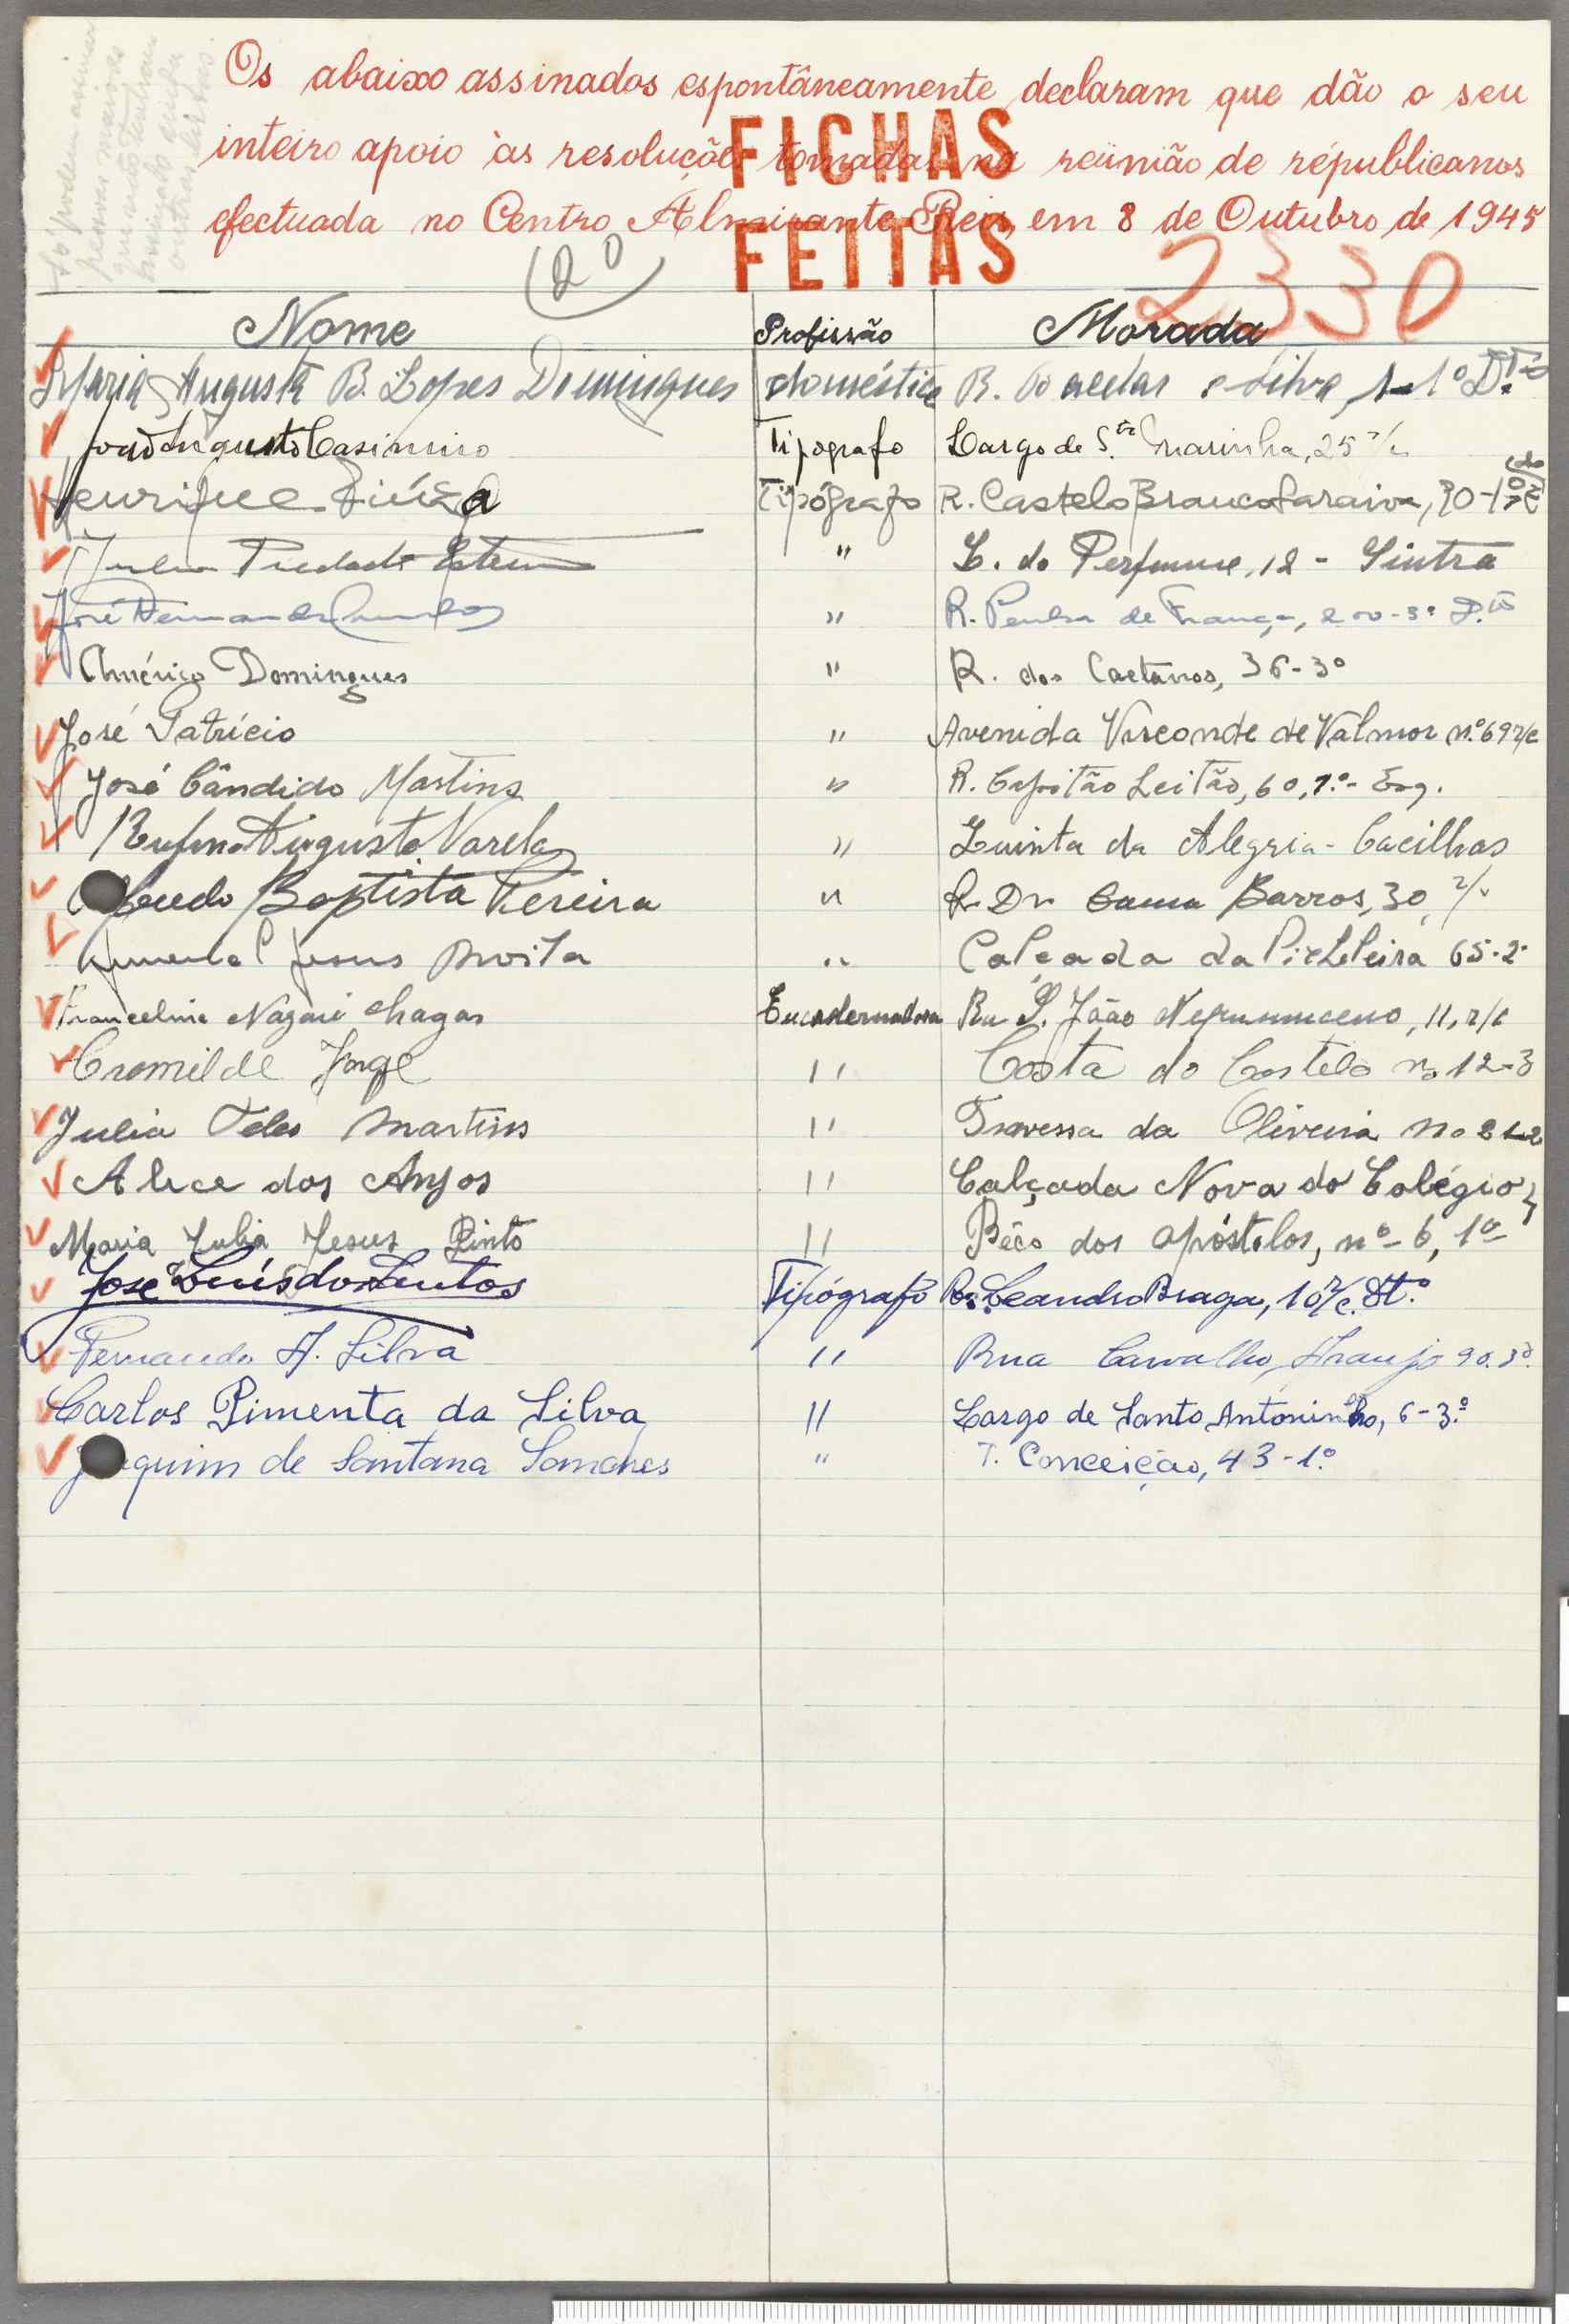 Só podem assinar
pessoas maiores
que não tenham
assinado
outras listas.
Os abaixo assinados espontâneamente declaram que dão o seu
inteiro apoio às resoluções tomadas na reünião de républicanos
efectuada no Centro Almirante Reis, em 8 de Outubro de 1945
FICHAS
FEITAS
(20)
2330
Nome Profissão Morada
Maria Augusta B. Lopes Domingues doméstica R. e Silva, 1-1º D.to
João Augusto Casimiro Tipografo Largo de S.ta Marinha, 25 r/c
Henrique Tipógrafo R. Castelo Branco Saraiva, 30-1º
Piedade " L. do Perfume, 12 - Sintra
José Fernandes " R. Penha de França, 200-3º D.to
Américo Domingues " R. dos Caetanos, 36-3º
José Patrício " Avenida Visconde de Valmor n.º 69 r/c
José Cândido Martins " R. Capitão Leitão, 60, 1.º- Esq.
Rufino Augusto Varela " Quinta da Alegria - Cacilhas
Alfredo Baptista Pereira " R. Dr. Gama Barros, 30, r/c
Jesus Moita " Calçada da Picheleira 65-2º
Francelina Nazaré Chagas Encadernadora Rua S. João Nepumuceno, 11, r/c
Cremilde Jorge " Costa do Castelo no 12-3
Julia Teles Martins " Travessa da Oliveira no
Alice dos Anjos " Calçada Nova do Colégio,
Maria Julia Jesus Pinto " Bêco dos apóstolos, nº 6, 1º
José Luís dos Santos Tipógrafo R. Leandro Braga, 10 r/c. Dt.º
Fernando A. Silva " Rua Carvalho Araujo 90. 3º.
Carlos Pimenta da Silva " Largo de Santo Antoninho, 6-3.º
Joaquim de Santana " T. Conceição, 43-1.º